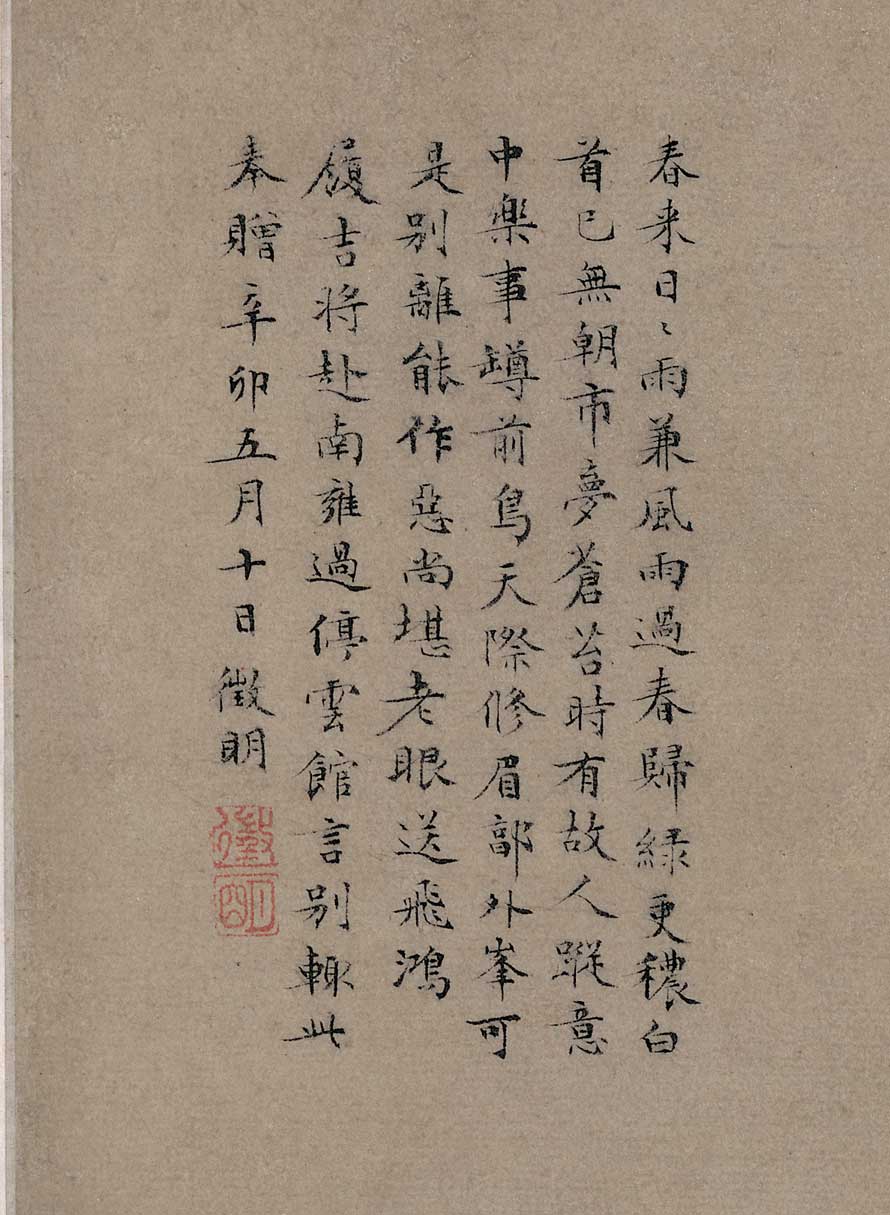 春来日〻雨兼風雨過春歸緑更穠白
首已無朝市夢蒼苔時有故人蹤意
中樂事罇前鳥天際修眉郭外峯可
是别離能作惡尚堪老眼送飛鴻
履吉将赴南雍過停雲館言别輙此
奉贈辛卯五月十日徵明
徵
明